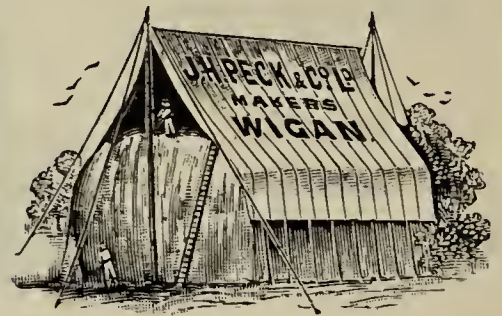 J.H. PECK & Co. LD
MAKERS
WIGAN